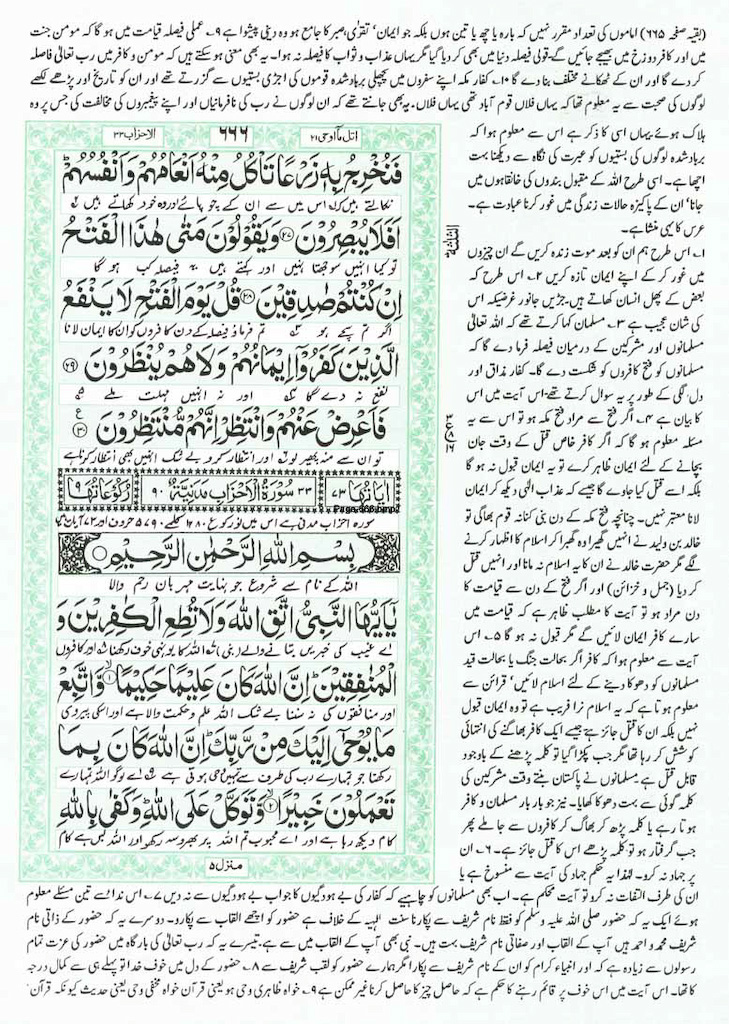 (بقیہ صفحہ ۶۶۵) اماموں کی تعداد مقرر نہیں کہ بارہ یا چھ یا تین ہوں بلکہ جو ایمان، تقویٰ، صبر کا جامع ہو وہ دینی پیشوا ہے ۹۔ عملی فیصلہ قیامت میں ہو گا کہ مومن جنت
میں اور کافر دوزخ میں بھیجے جائیں گے۔ قولی فیصلہ دنیا میں بھی کر دیا گیا مگر یہاں عذاب و ثواب کا فیصلہ نہ ہوا۔ یہ بھی معنی ہو سکتے ہیں کہ مومن و کافر میں رب تعالیٰ فاصلہ
کر دے گا اور ان کے ٹھکانے مختلف بنا دے گا ۱۰۔ کفار مکہ اپنے سفروں میں پچھلی برباد شدہ قوموں کی اجڑی بستیوں سے گزرتے تھے اور ان کو تاریخ اور پڑھے لکھے
لوگوں کی صحبت سے یہ معلوم تھا کہ یہاں فلاں قوم آباد تھی یہاں فلاں۔ یہ بھی جانتے تھے کہ ان لوگوں نے رب کی نافرمانیاں اور اپنے پیغمبروں کی مخالفت کی جس پر وہ
ہلاک ہوئے یہاں اسی کا ذکر ہے اس سے معلوم ہوا کہ
برباد شدہ لوگوں کی بستیوں کو عبرت کی نگاہ سے دیکھنا بہت
اچھا ہے۔ اسی طرح اللہ کے مقبول بندوں کی خانقاہوں میں
جانا، ان کے پاکیزہ حالات زندگی میں غور کرنا عبادت ہے۔
عرس کا یہی منشا ہے۔
۱۔ اس طرح ہم ان کو بعد موت زندہ کریں گے ان چیزوں
میں غور کر کے اپنے ایمان تازہ کریں ۲۔ اس طرح کہ
بعض کے پھل انسان کھاتے ہیں۔ جڑیں جانور غرضیکہ اس
کی شان عجیب ہے ۳۔ مسلمان کہا کرتے تھے کہ اللہ تعالیٰ
مسلمانوں اور مشرکین کے درمیان فیصلہ فرما دے گا کہ
مسلمانوں کو فتح کافروں کو شکست دے گا۔ کفار مذاق اور
دل لگی کے طور پر یہ سوال کرتے تھے۔ اس آیت میں اس
کا بیان ہے ۴۔ اگر فتح سے مراد فتح مکہ ہو تو اس سے یہ
مسئلہ معلوم ہو گا کہ اگر کافر خاص قتل کے وقت جان
بچانے کے لئے ایمان ظاہر کرے تو یہ ایمان قبول نہ ہو گا
بلکہ اسے قتل کیا جاوے گا جیسے کہ عذاب الٰہی دیکھ کر ایمان
لانا معتبر نہیں۔ چنانچہ فتح مکہ کے دن بنی کنانہ قوم بھاگی تو
خالد بن ولید نے انہیں گھیرا وہ گھبرا کر اسلام کا اظہار کرنے
لگے مگر حضرت خالد نے ان کا یہ اسلام نہ مانا اور انہیں قتل
کر دیا (جمل و خزائن) اور اگر فتح کے دن سے قیامت کا
دن مراد ہو تو آیت کا مطلب ظاہر ہے کہ قیامت میں
سارے کافر ایمان لائیں گے مگر قبول نہ ہو گا ۵۔ اس
آیت سے معلوم ہوا کہ کافر اگر بحالت جنگ یا بحالت قید
مسلمانوں کو دھوکا دینے کے لئے اسلام لائیں، قرائن سے
معلوم ہوتا ہے کہ یہ اسلام نرا فریب ہے تو وہ ایمان قبول
نہیں بلکہ ان کا قتل جائز ہے جیسے ایک کافر بھاگنے کی انتہائی
کوشش کر رہا تھا مگر جب پکڑا گیا تو کلمہ پڑھنے کے باوجود
قابل قتل ہے۔ مسلمانوں نے پاکستان بنتے وقت مشرکین کی
کلمہ گوئی سے بہت دھوکا کھایا۔ نیز جو بار بار مسلمان و کافر
ہوتا رہے یا کلمہ پڑھ کر بھاگ کر کافروں سے جا ملے پھر
جب گرفتار ہو تو کلمہ پڑھے اس کا قتل جائز ہے۔ ۶۔ ان
پر جہاد نہ کرو۔ لہٰذا یہ حکم جہاد کی آیت سے منسوخ ہے یا
اتل ما اوحی ۲۱
۶۶۶
الاحزاب ۳۳
فَنُخْرِجُ بِهٖ زَرْعًا تَاْكُلُ مِنْهُ اَنْعَامُهُمْ وَاَنْفُسُهُمْ
نکالتے ہیں کہ اس میں سے ان کے چوپائے اور وہ خود کھاتے ہیں
اَفَلَا يُبْصِرُوْنَ ﴿۲۷﴾ وَيَقُوْلُوْنَ مَتٰى هٰذَا الْفَتْحُ
تو کیا انہیں سوجھتا نہیں اور کہتے ہیں یہ فیصلہ کب ہو گا
اِنْ كُنْتُمْ صٰدِقِيْنَ ﴿۲۸﴾ قُلْ يَوْمَ الْفَتْحِ لَا يَنْفَعُ
اگر تم سچے ہو تم فرماؤ فیصلہ کے دن کافروں کو ان کا ایمان لانا
الَّذِيْنَ كَفَرُوْٓا اِيْمَانُهُمْ وَلَا هُمْ يُنْظَرُوْنَ ﴿۲۹﴾
نفع نہ دے گا اور نہ انہیں مہلت ملے
فَاَعْرِضْ عَنْهُمْ وَانْتَظِرْ اِنَّهُمْ مُّنْتَظِرُوْنَ ﴿۳۰﴾
تو ان سے منہ پھیر لو اور انتظار کرو بے شک انہیں بھی انتظار کرنا ہے
اٰيَاتُهَا ۷۳ ۳۳ سُوْرَةُ الْاَحْزَابِ مَدَنِيَّةٌ ۹۰ رُكُوْعَاتُهَا ۹
Page-666.bmp
سورہ احزاب مدنی ہے اس میں نو رکوع ۱۲۸۰ کلمے ۵۷۹۰ حروف اور ۷۳ آیات ہیں
بِسْمِ اللّٰهِ الرَّحْمٰنِ الرَّحِيْمِ
اللہ کے نام سے شروع جو نہایت مہربان رحم والا
يٰٓاَيُّهَا النَّبِيُّ اتَّقِ اللّٰهَ وَلَا تُطِعِ الْكٰفِرِيْنَ وَ
اے غیب کی خبریں بتانے والے (نبی) اللہ کا یونہی خوف رکھنا اور کافروں
الْمُنٰفِقِيْنَ اِنَّ اللّٰهَ كَانَ عَلِيْمًا حَكِيْمًا ﴿۱﴾ وَّاتَّبِعْ
اور منافقوں کی نہ سننا بے شک اللہ علم و حکمت والا ہے اور اسکی پیروی
مَا يُوْحٰٓى اِلَيْكَ مِنْ رَّبِّكَ اِنَّ اللّٰهَ كَانَ بِمَا
رکھنا جو تمہارے رب کی طرف سے تمہیں وحی ہوتی ہے اے لوگو اللہ تمہارے
تَعْمَلُوْنَ خَبِيْرًا ﴿۲﴾ وَّتَوَكَّلْ عَلَى اللّٰهِ وَكَفٰى بِاللّٰهِ
کام دیکھ رہا ہے اور اے محبوب تم اللہ پر بھروسہ رکھو اور اللہ بس ہے کام
منزل ۵
ان کی طرف التفات نہ کرو تو آیت محکم ہے۔ اب بھی مسلمانوں کو چاہیے کہ کفار کی بے ہودگیوں کا جواب بے ہودگیوں سے نہ دیں ۷۔ اس ندا سے تین مسئلے معلوم
ہوئے ایک یہ کہ حضور صلی اللہ علیہ وسلم کو فقط نام شریف سے پکارنا سنت الٰہیہ کے خلاف ہے حضور کو اچھے القاب سے پکارو۔ دوسرے یہ کہ حضور کے ذاتی نام
شریف محمد و احمد ہیں آپ کے القاب اور صفاتی نام شریف بہت ہیں۔ نبی بھی آپ کے القاب میں سے ہے۔ تیسرے یہ کہ رب تعالیٰ کی بارگاہ میں حضور کی عزت تمام
رسولوں سے زیادہ ہے کہ اور انبیاء کرام کو ان کے نام شریف سے پکارا مگر ہمارے حضور کو لقب شریف سے ۸۔ حضور کے دل میں خوف خدا تو پہلے ہی سے کمال درجہ
کا تھا۔ اس آیت میں اس خوف پر قائم رہنے کا حکم ہے کہ حاصل چیز کا حاصل کرنا غیر ممکن ہے ۹۔ خواہ ظاہری وحی ہو یعنی قرآن خواہ مخفی وحی یعنی حدیث کیونکہ قرآن